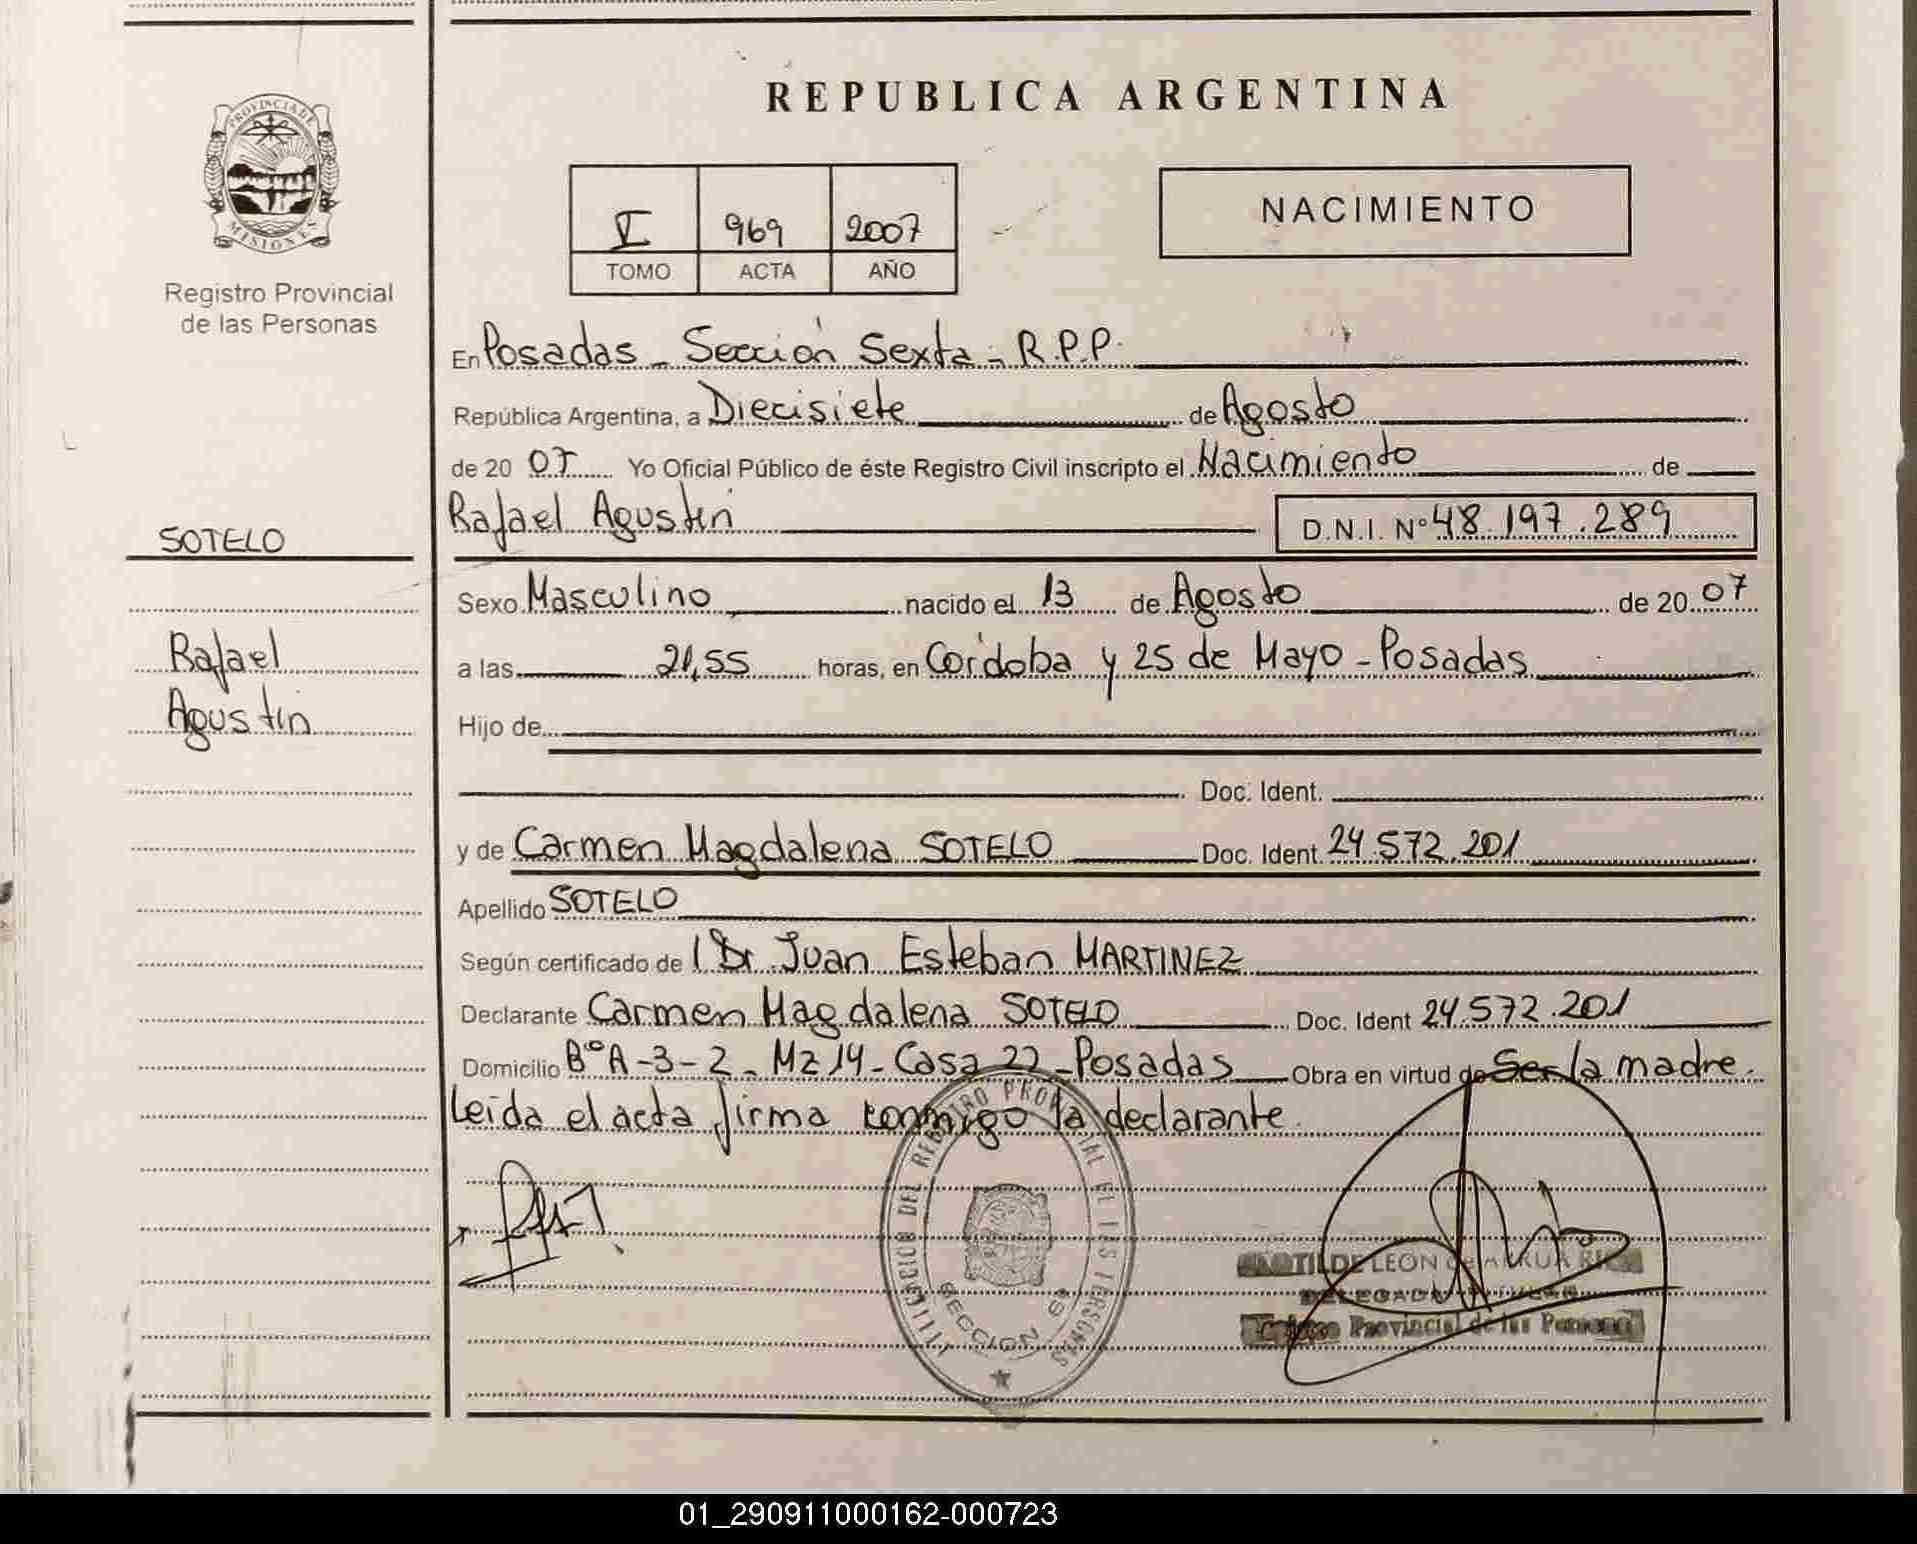 REPUBLICA ARGENTINA
PROVINCIA DE
MISIONES
Registro Provincial
de las Personas
V 969 2007
TOMO ACTA AÑO
NACIMIENTO
En Posadas - Sección Sexta - R.P.P.
República Argentina, a Diecisiete de Agosto
de 20 07 Yo Oficial Público de éste Registro Civil inscripto el Nacimiento de
Rafael Agustín D.N.I. Nº 48.197.289
SOTELO
Rafael
Agustín
Sexo Masculino nacido el 13 de Agosto de 20 07
a las 21,55 horas, en Córdoba y 25 de Mayo - Posadas
Hijo de
Doc. Ident.
y de Carmen Magdalena SOTELO Doc. Ident. 24.572.201
Apellido SOTELO
Según certificado de Dr Juan Esteban MARTINEZ
Declarante Carmen Magdalena SOTELO Doc. Ident 24.572.201
Domicilio Bº A-3-2 - Mz 14 - Casa 22 - Posadas Obra en virtud de Ser la madre.
Leída el acta firma conmigo la declarante.
REGISTRO PROVINCIAL DE LAS PERSONAS
SECCION 6ª
LEON de
Provincial de las Personas
01_290911000162-000723